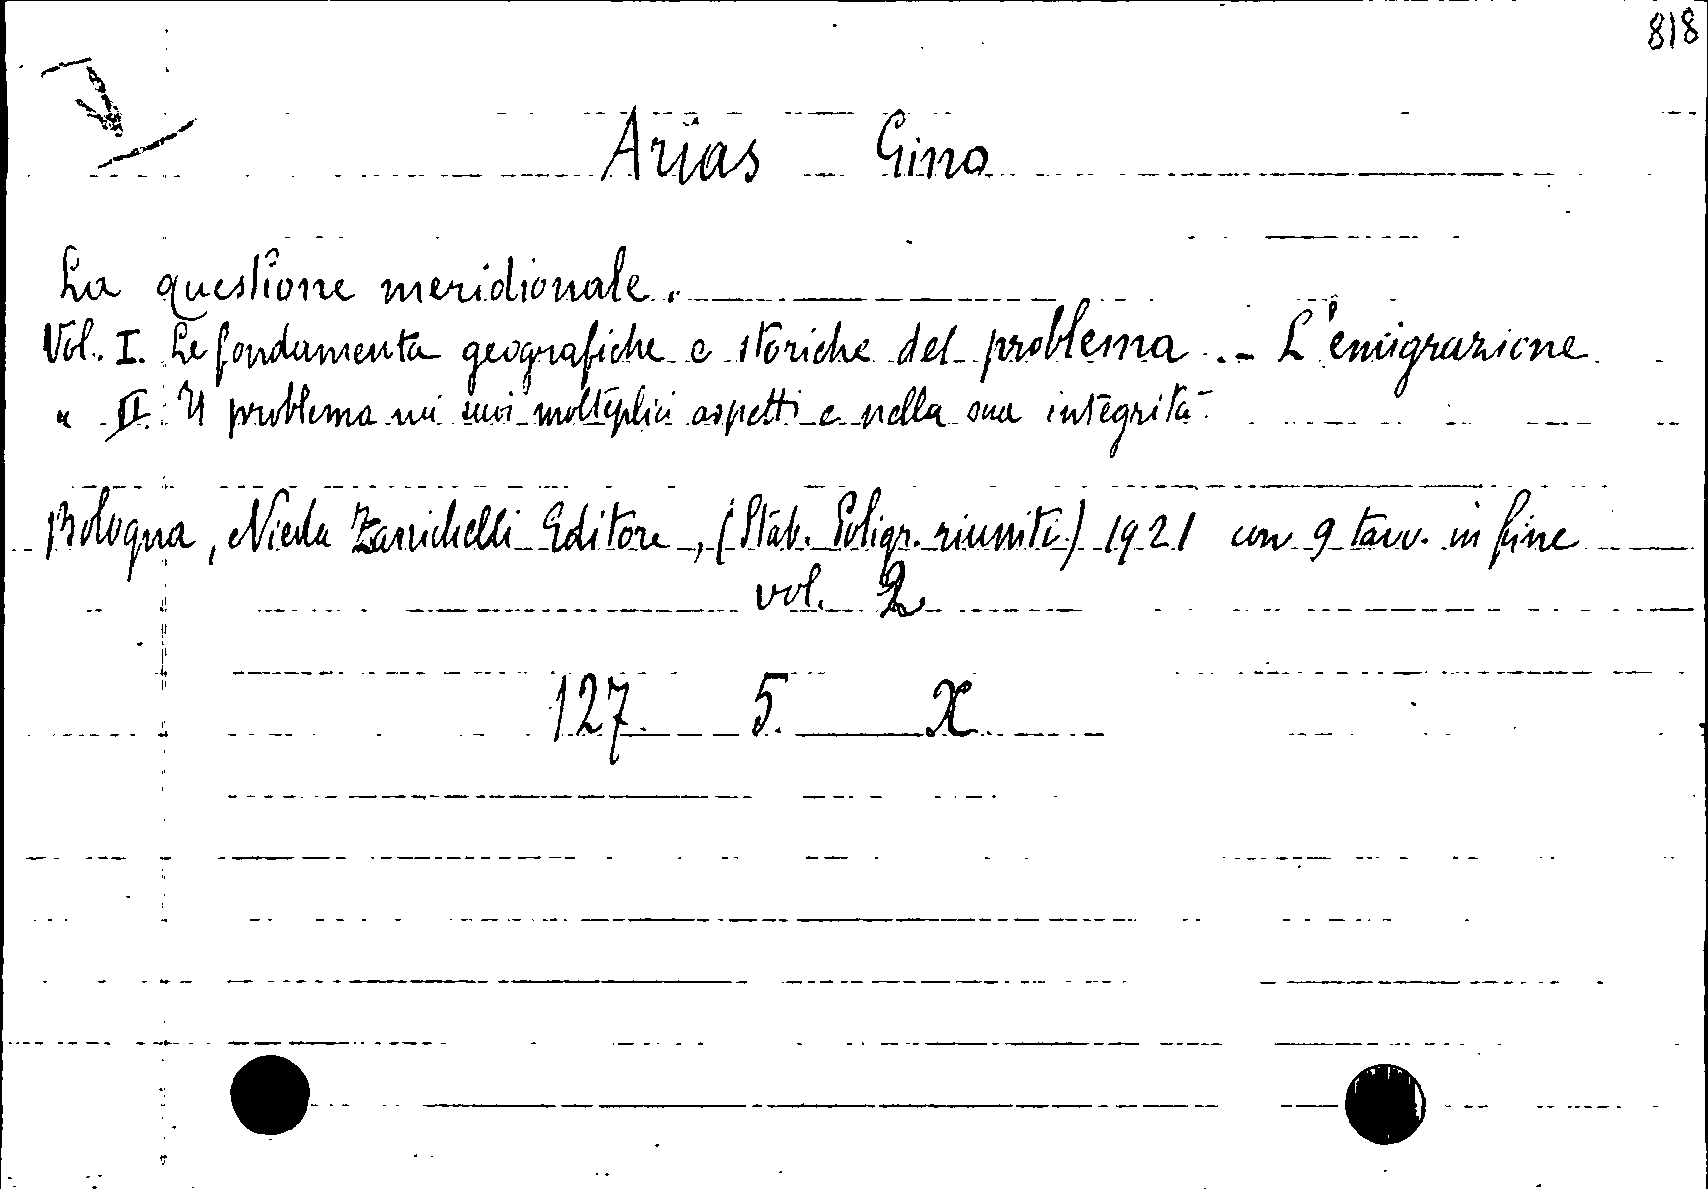 818
Arias Gino
La questione meridionale.
Vol. I. Le fondamenta geografiche e storiche del problema. - L'emigrazione
" II. Il problema nei suoi molteplici aspetti e nella sua integrità.
Bologna, Nicola Zanichelli Editore, (Stab. Poligr. riuniti) 1921 con 9 tavv. in fine
vol. 2
127 5. X